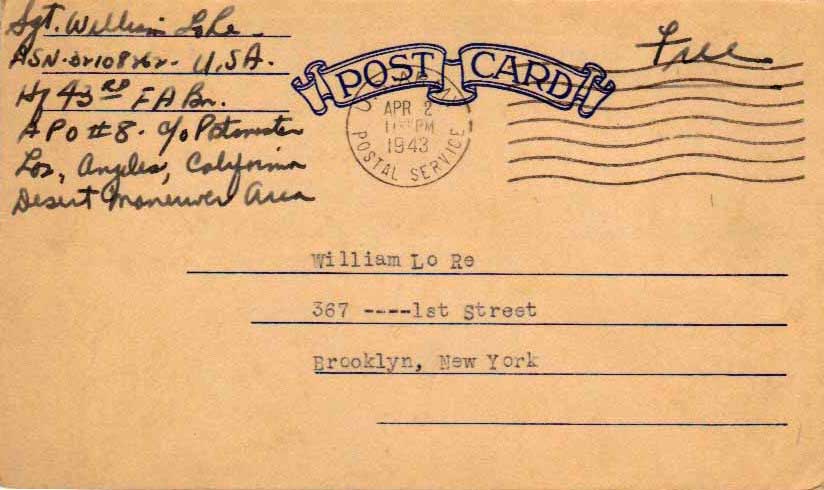 Sgt. William LoRe
ASN. 32108262. U.S.A.
Hq 43rd F A Bn.
A P O #8. c/o Postmaster
Los, Angeles, California
Desert Maneuver Area
Free
POST CARD
U.S. ARMY
APR 2
PM
1943
POSTAL SERVICE
William Lo Re
367 ----1st Street
Brooklyn, New York